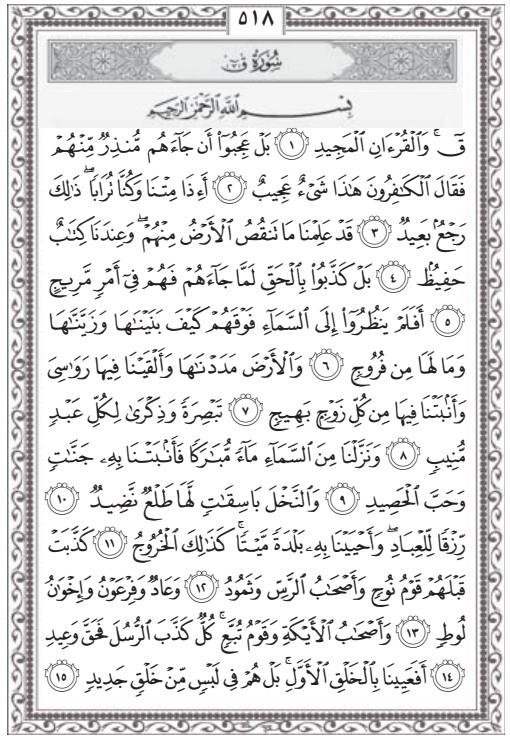 ٥١٨
سُورَةُ قٓ
بِسْمِ ٱللَّهِ ٱلرَّحْمَٰنِ ٱلرَّحِيمِ
قٓۚ وَٱلْقُرْءَانِ ٱلْمَجِيدِ ١ بَلْ عَجِبُوٓا۟ أَن جَآءَهُم مُّنذِرٌ مِّنْهُمْ
فَقَالَ ٱلْكَٰفِرُونَ هَٰذَا شَىْءٌ عَجِيبٌ ٢ أَءِذَا مِتْنَا وَكُنَّا تُرَابًاۖ ذَٰلِكَ
رَجْعٌۢ بَعِيدٌ ٣ قَدْ عَلِمْنَا مَا تَنقُصُ ٱلْأَرْضُ مِنْهُمْۖ وَعِندَنَا كِتَٰبٌ
حَفِيظٌۢ ٤ بَلْ كَذَّبُوا۟ بِٱلْحَقِّ لَمَّا جَآءَهُمْ فَهُمْ فِىٓ أَمْرٍ مَّرِيجٍ
٥ أَفَلَمْ يَنظُرُوٓا۟ إِلَى ٱلسَّمَآءِ فَوْقَهُمْ كَيْفَ بَنَيْنَٰهَا وَزَيَّنَّٰهَا
وَمَا لَهَا مِن فُرُوجٍ ٦ وَٱلْأَرْضَ مَدَدْنَٰهَا وَأَلْقَيْنَا فِيهَا رَوَٰسِىَ
وَأَنۢبَتْنَا فِيهَا مِن كُلِّ زَوْجٍۭ بَهِيجٍ ٧ تَبْصِرَةً وَذِكْرَىٰ لِكُلِّ عَبْدٍ
مُّنِيبٍ ٨ وَنَزَّلْنَا مِنَ ٱلسَّمَآءِ مَآءً مُّبَٰرَكًا فَأَنۢبَتْنَا بِهِۦ جَنَّٰتٍ
وَحَبَّ ٱلْحَصِيدِ ٩ وَٱلنَّخْلَ بَاسِقَٰتٍ لَّهَا طَلْعٌ نَّضِيدٌ ١٠
رِّزْقًا لِّلْعِبَادِۖ وَأَحْيَيْنَا بِهِۦ بَلْدَةً مَّيْتًاۚ كَذَٰلِكَ ٱلْخُرُوجُ ١١ كَذَّبَتْ
قَبْلَهُمْ قَوْمُ نُوحٍ وَأَصْحَٰبُ ٱلرَّسِّ وَثَمُودُ ١٢ وَعَادٌ وَفِرْعَوْنُ وَإِخْوَٰنُ
لُوطٍ ١٣ وَأَصْحَٰبُ ٱلْأَيْكَةِ وَقَوْمُ تُبَّعٍۚ كُلٌّ كَذَّبَ ٱلرُّسُلَ فَحَقَّ وَعِيدِ
١٤ أَفَعَيِينَا بِٱلْخَلْقِ ٱلْأَوَّلِۚ بَلْ هُمْ فِى لَبْسٍ مِّنْ خَلْقٍ جَدِيدٍ ١٥